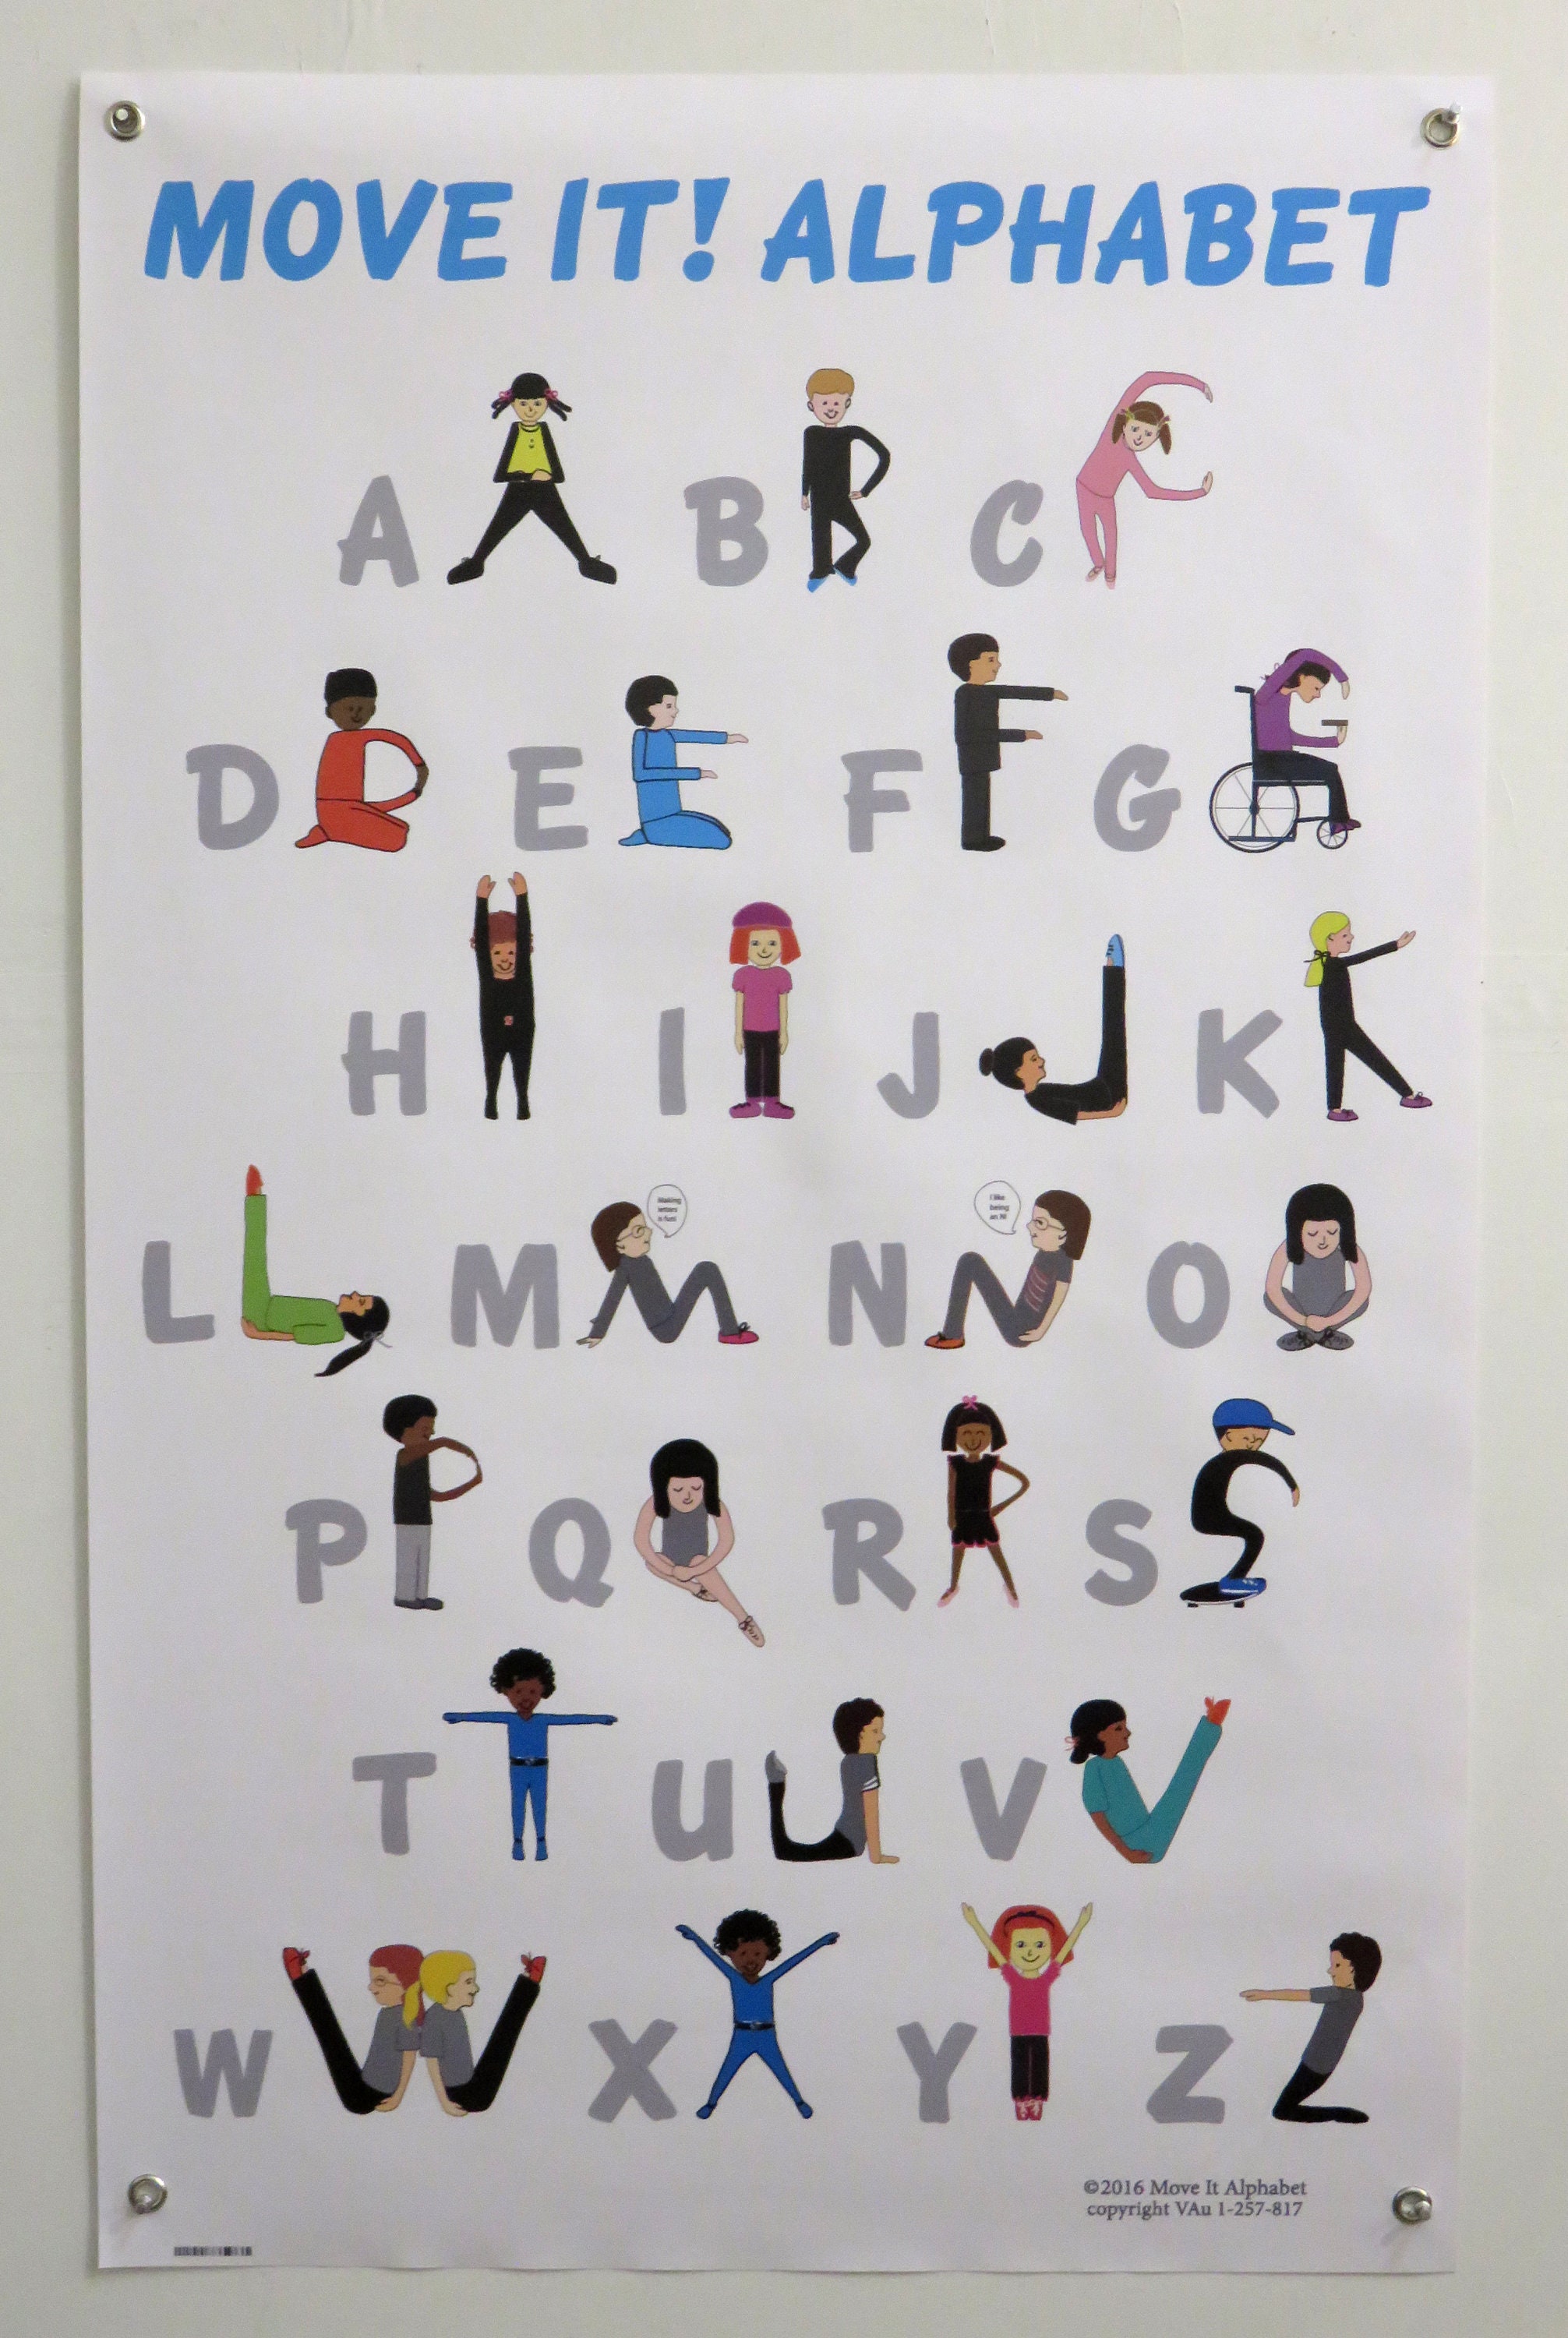 MOVE IT! ALPHABET
A B C
D E F G
H I J K
L M N O
Making
letters
is fun!
I like
being
an N!
P Q R S
T U V
W X Y Z
©2016 Move It Alphabet
copyright VAu 1-257-817